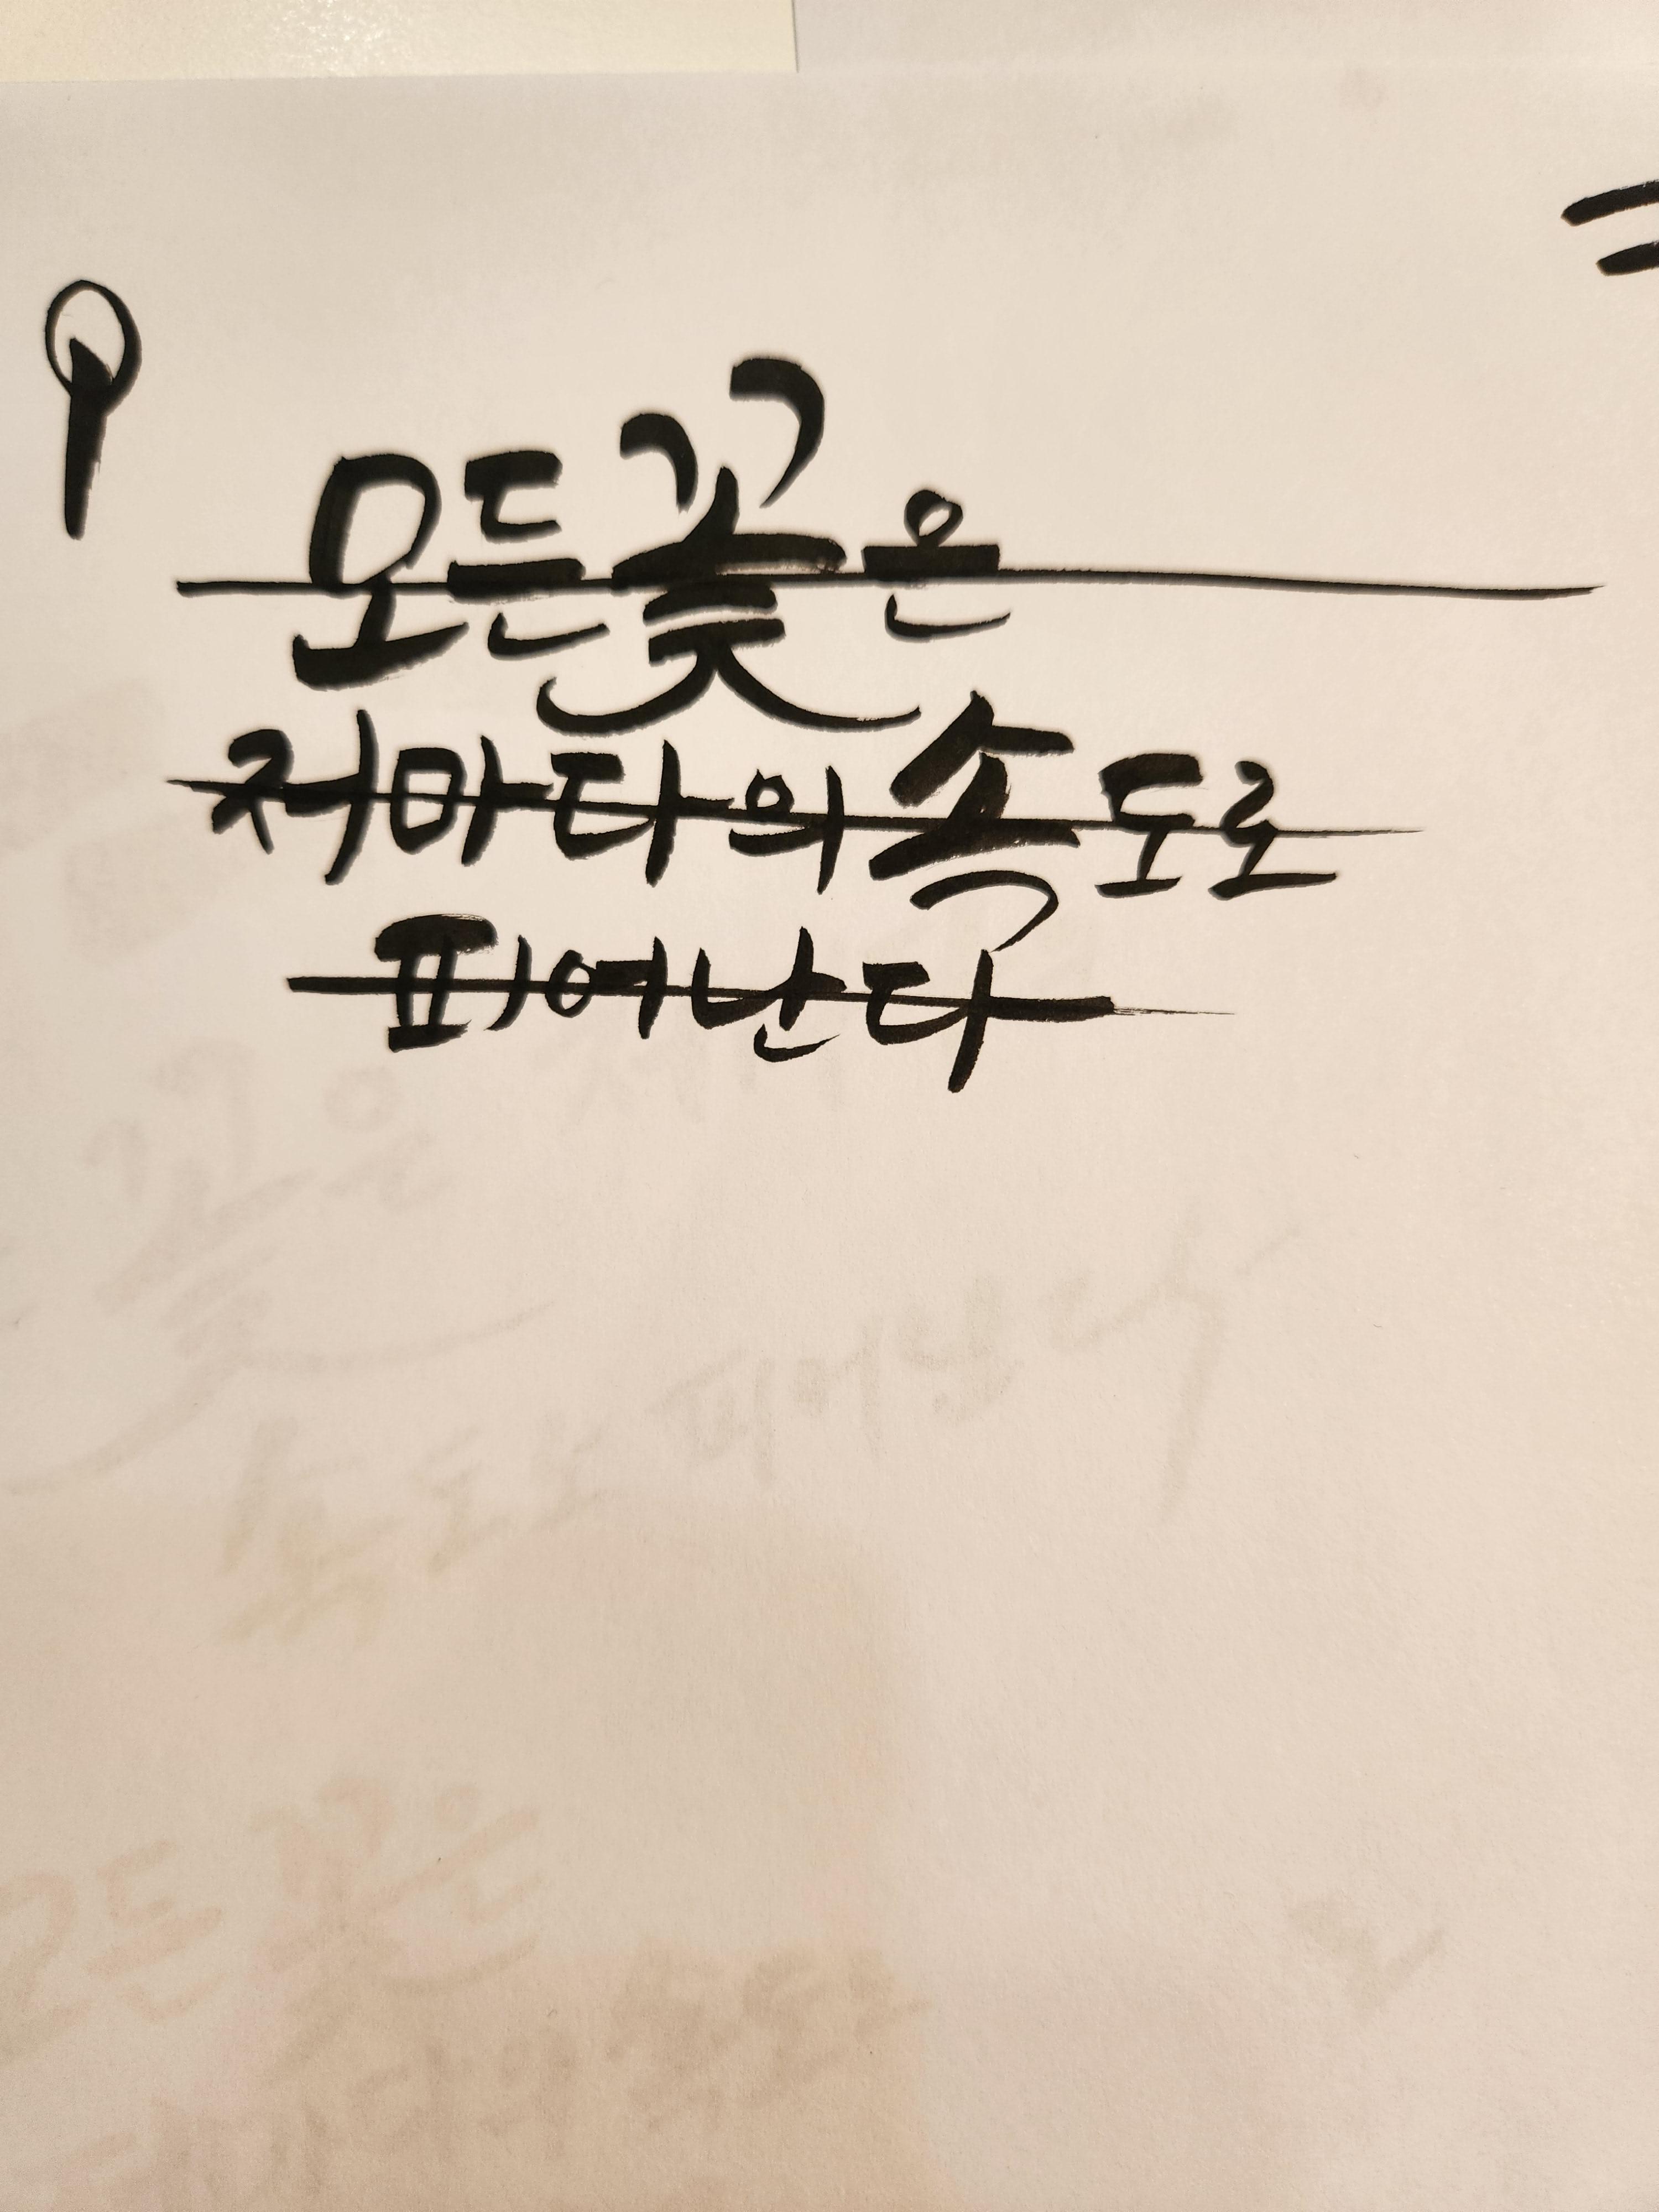 모든 꽃은
저마다의 속도로
피어난다